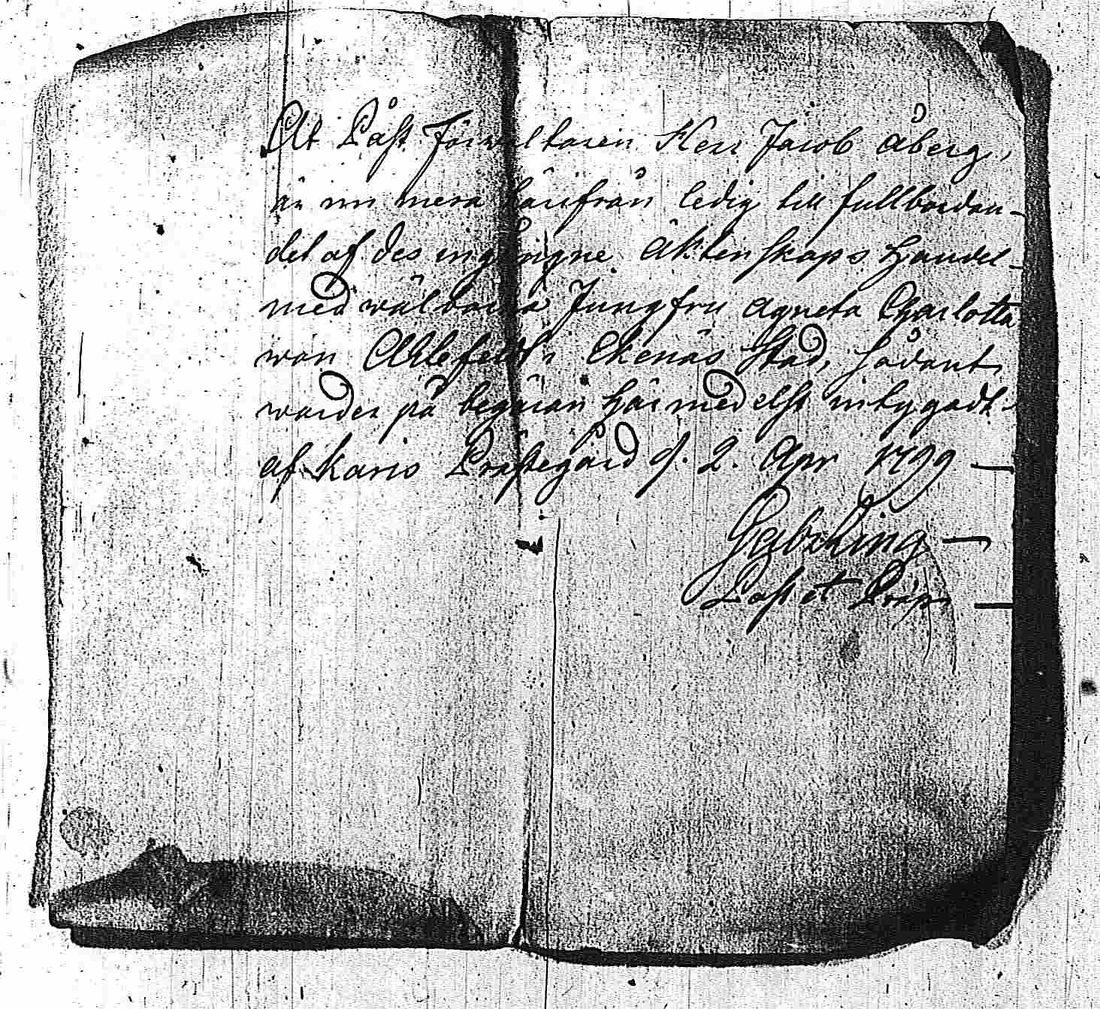 At Påst förvaltaren Herr Jacob Åberg,
är nu mera härifrån ledig till fullbordan-
det af des ingångne Äktenskaps Handel
med wälborna Jungfru Agneta Charlotta
von Ahlefeldt i Ekenäs Stad, sådant
warder på begäran härmedelst intygadt.
af Karis Prästegård d. 2. Apr 1799
Past et Præp.